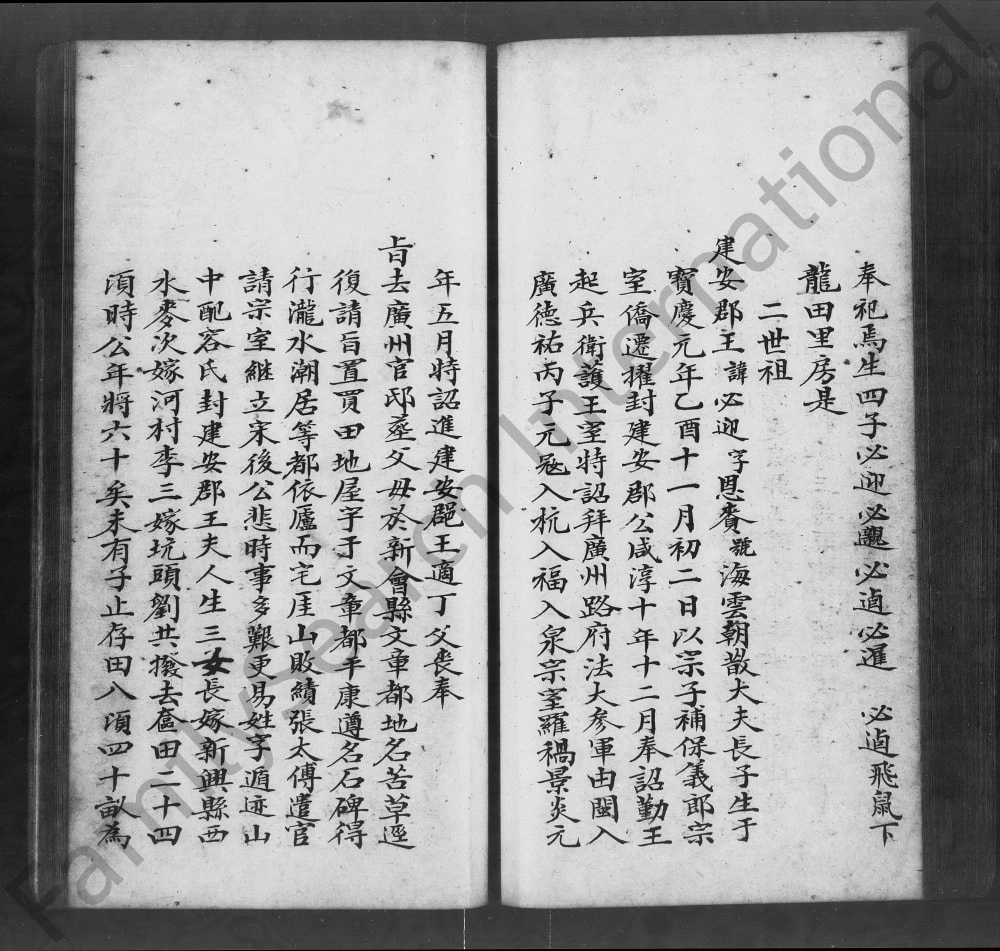 奉祀焉生四子必迎必𨘢必逌必暹　必逌飛鼠下
龍田里房是
二世祖
建安郡王諱必迎字恩賚號海雲朝散大夫長子生于
寶慶元年乙酉十一月初二日以宗子補保儀郎宗
室僑遷擢封建安郡公咸淳十年十二月奉詔勤王
起兵衛護王室特詔拜廣州路府法大參軍由閩入
廣德祐丙子元冦入杭入福入泉宗室羅禍景炎元
年五月特詔進建安郡王適丁父喪奉
旨去廣州官邸塟父母於新會縣文章都地名苦草逕
復請旨置買田地屋宇于文章都平康遵名石碑得
行瀧水潮居等都依廬而宅厓山敗績張太傅遣官
請宗室継立宋後公悲時事多艱更易姓字遁迹山
中配容氏封建安郡王夫人生三女長嫁新興縣西
水麥次嫁河村李三嫁坑頭劉共撥去奩田二十四
頃時公年將六十矣未有子止存田八頃四十畝為
FamilySearch International